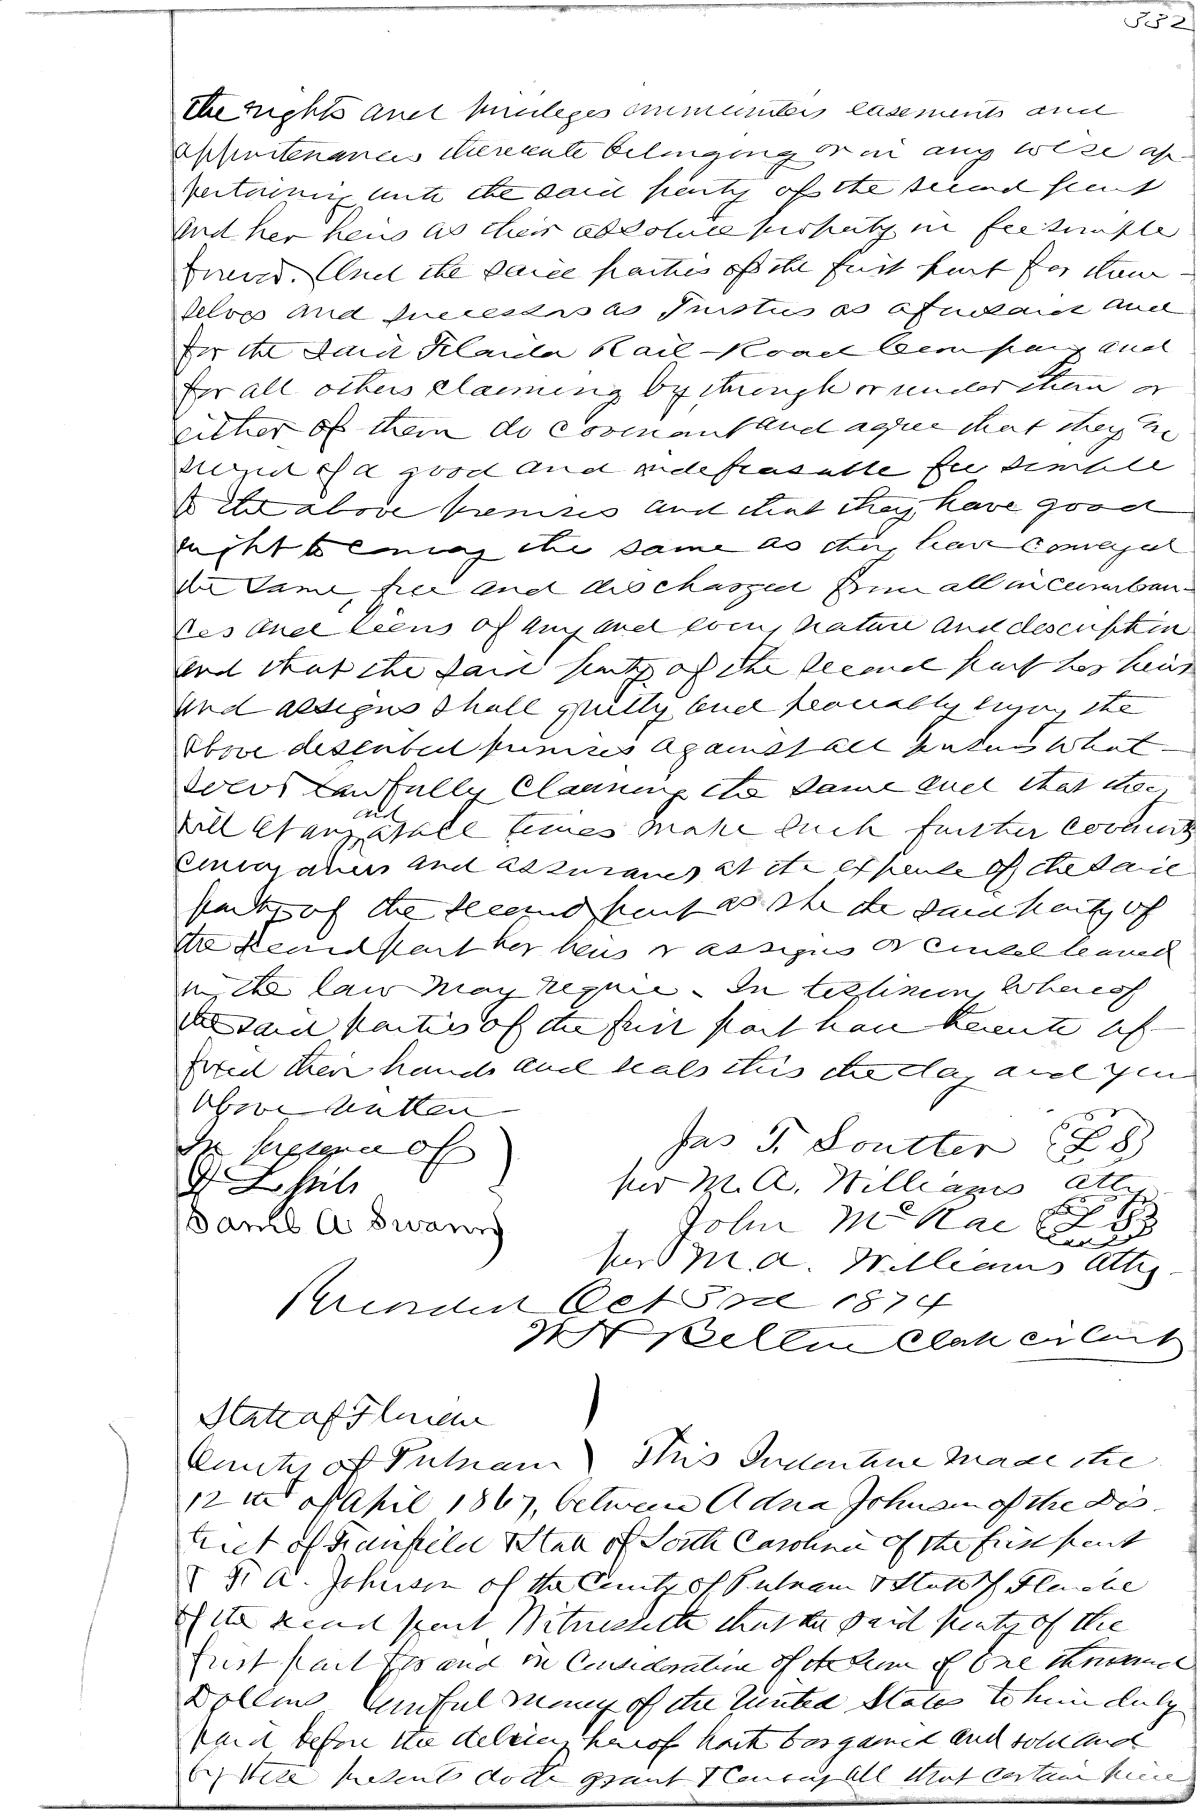 332
the rights and privileges immunities easements and
appurtenances thereunto belonging or in any wise ap-
pertaining unto the said party of the second part
and her heirs as their absolute property in fee simple
forever. And the said parties of the first part for them-
selves and successors as Trustees as aforesaid and
for the said Florida Rail-Road Company and
for all others claiming by, through or under them or
either of them do covenant and agree that they are
seized of a good and indefeasable fee simple
to the above premises and that they have good
right to convey the same as they have conveyed
the same, free and discharged from all incumbran-
ces and liens of any and every nature and description
and that the said party of the second part her heirs
and assigns shall quietly and peaceably enjoy the
above described premises against all persons what-
soever lawfully claiming the same and that they
will at any and at all times make such further covenants
conveyances and assurances at the expense of the said
party of the second part as she the said party of
the second part her heirs or assigns or counsel learned
in the law may require - In testimony Whereof
the said parties of the first part have hereunto af-
fixed their hands and seals this the day and year
above written
In presence of
Jas T. Soutter (L S)
per M. A. Williams atty
Saml A Swann
John McRae (L S)
per M. A. Williams atty
Recorded Oct 3rd 1874
Clerk cir Court
State of Florida
County of Putnam ) This Indenture made the
12th of April 1867, between Adna Johnson of the Dis-
trict of Fairfield & State of South Carolina of the first part
& F. A. Johnson of the County of Putnam & State of Florida
of the second part Witnesseth that the said party of the
first part for and in Consideration of the sum of One thousand
Dollars lawful money of the United States to him duly
paid before the delivery hereof hath bargained and sold and
by these presents doth grant & Convey all that certain piece